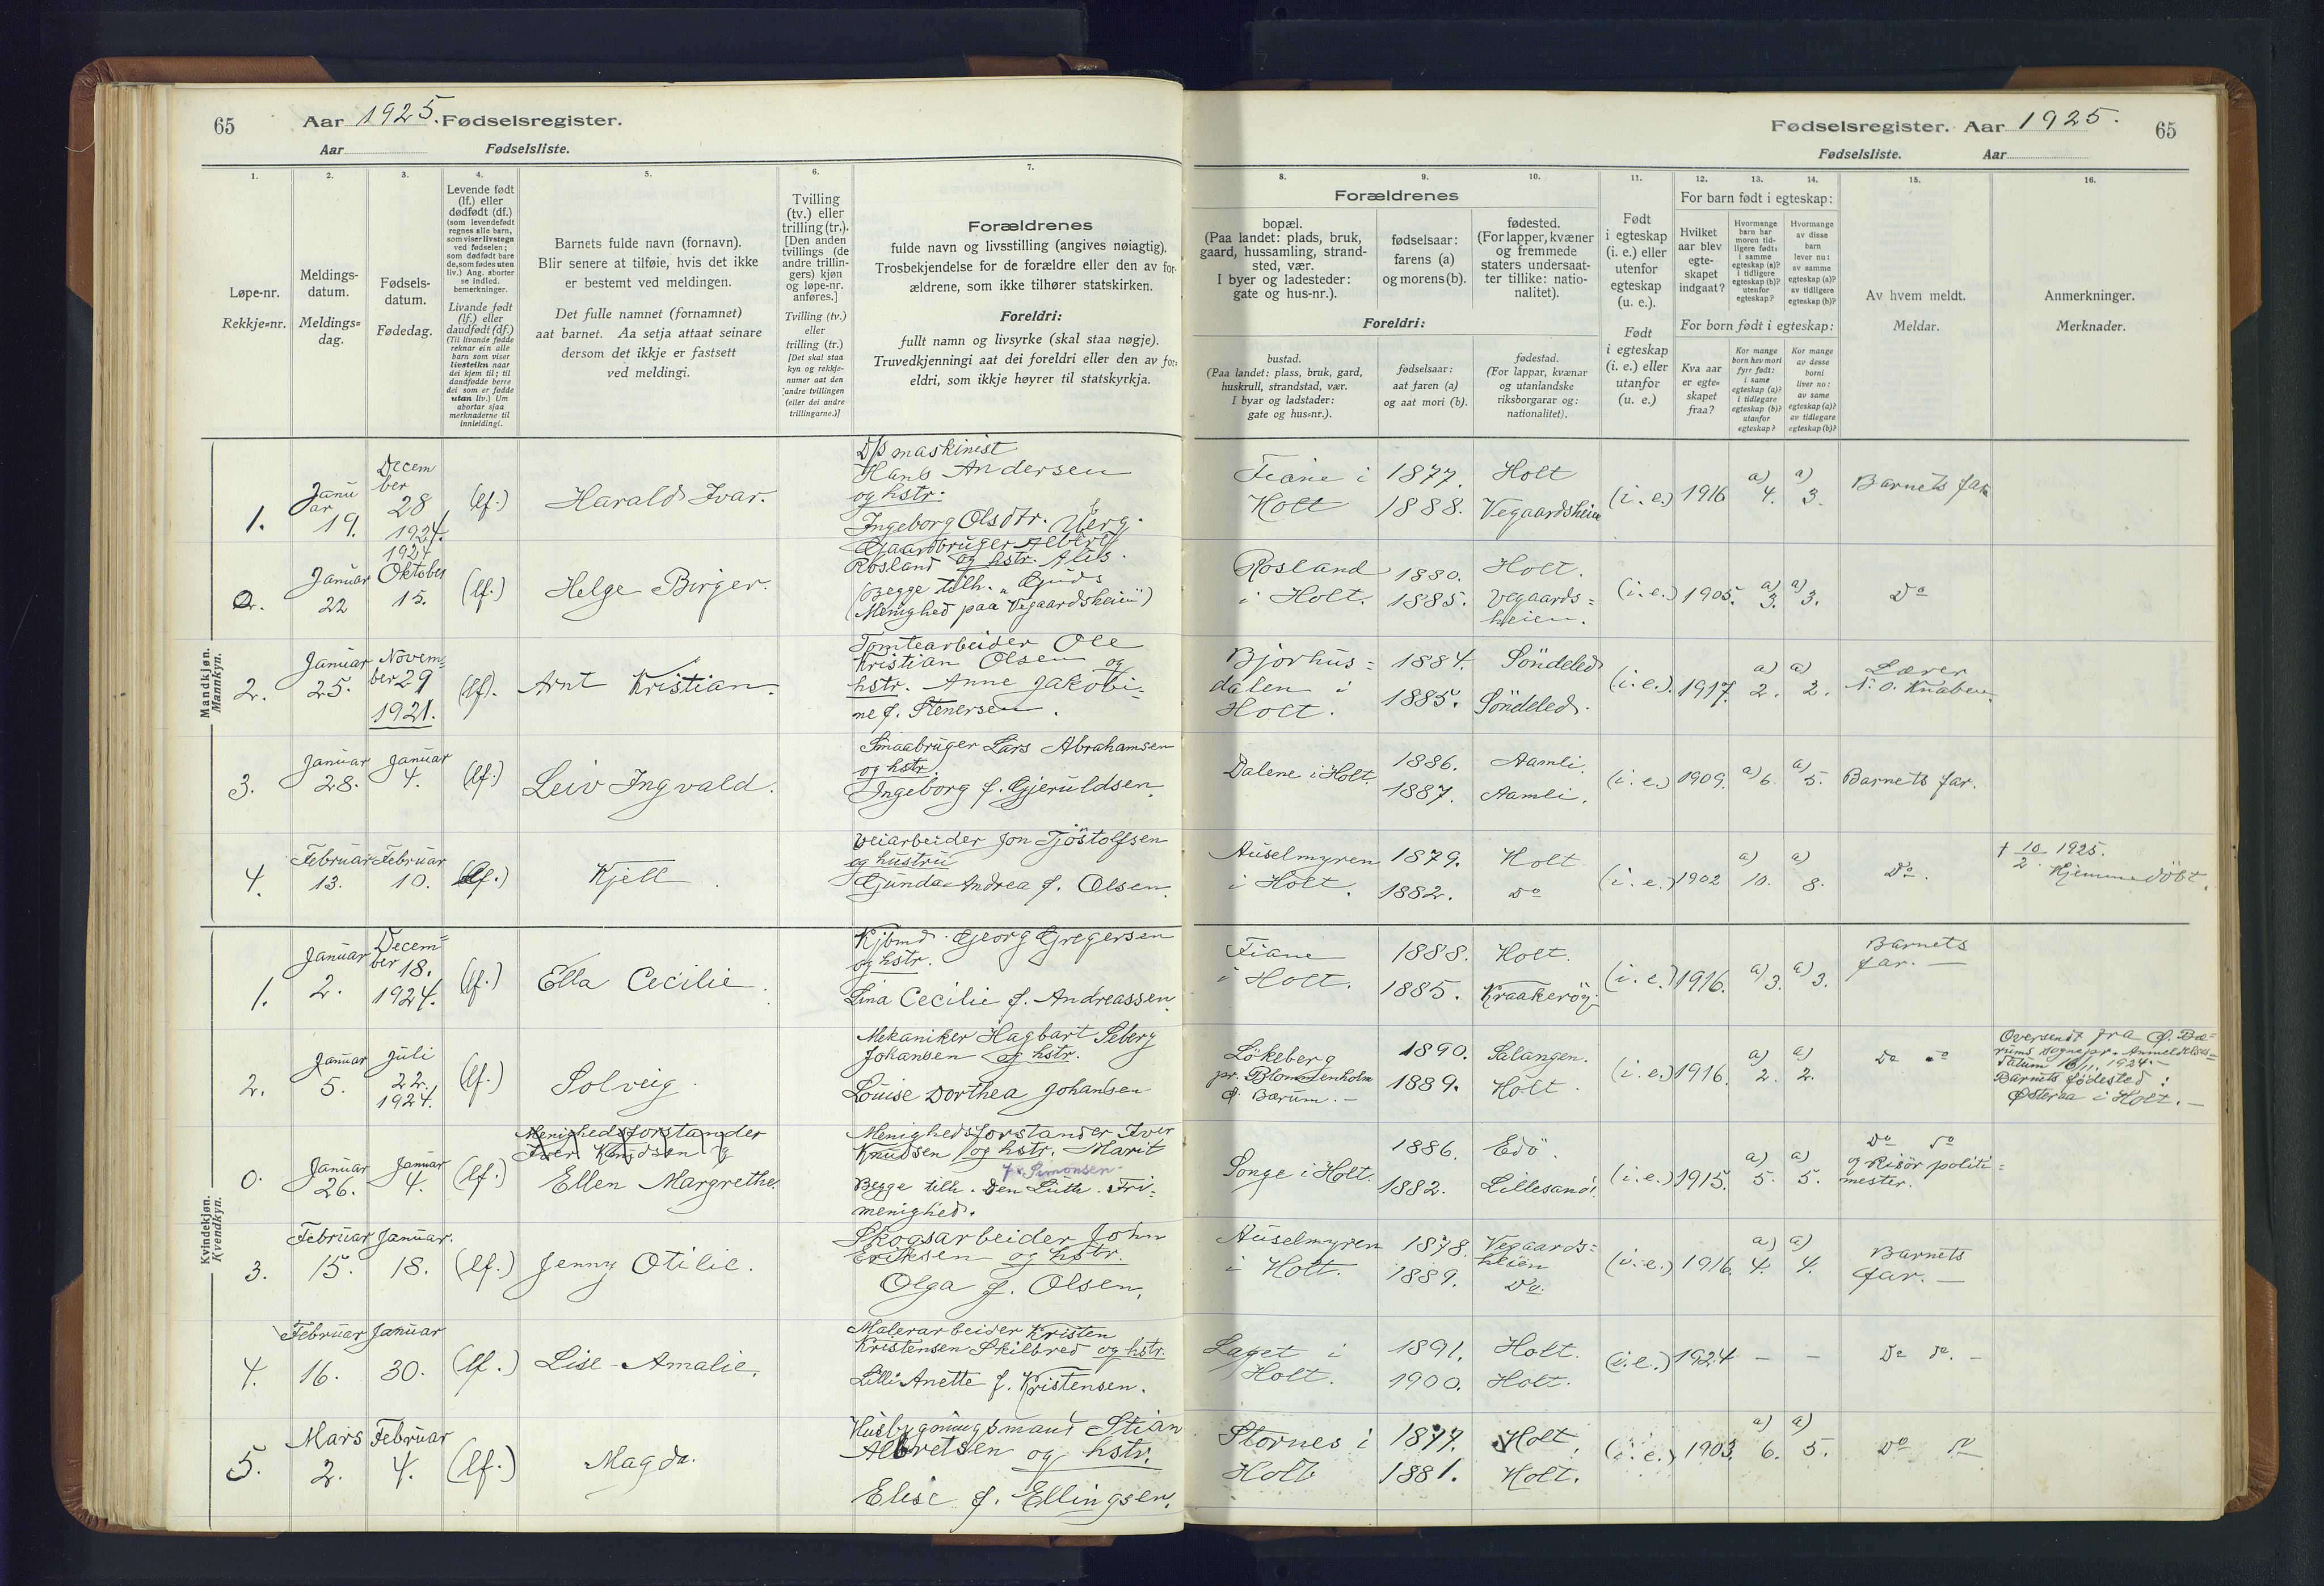 65
Aar 1925. Fødselsregister.
Aar Fødselsliste.
1.
2.
3.
4.
5.
6.
7.
Løpe-nr.
Rekkje=nr.
Meldings-
datum.
Meldings=
dag.
Fødsels-
datum.
Fødedag.
Levende født
(lf.) eller
dødfødt (df.)
(som levendefødt
regnes alle barn,
som viser livstegn
ved fødselen;
som dødfødt bare
de, som fødes uten
liv.) Ang. aborter
se indled.
bemerkninger.
Livande født
(lf.) eller
daudfødt (df.)
(Til livande fødde
reknar ein alle
barn som viser
livsteikn naar
dei kjem til; til
daudfødde berre
dei som er fødde
utan liv.) Um
abortar sjaa
merknaderne til
innleidingi.
Barnets fulde navn (fornavn).
Blir senere at tilføie, hvis det ikke
er bestemt ved meldingen.
Det fulle namnet (fornamnet)
aat barnet. Aa setja attaat seinare
dersom det ikkje er fastsett
ved meldingi.
Tvilling
(tv.) eller
trilling (tr.).
[Den anden
tvillings (de
andre trillin-
gers) kjøn
og løpe-nr.
anføres.]
Tvilling (tv.)
eller
trilling (tr.)
[Det skal staa
kyn og rekkje-
numer aat den
andre tvillingen
(eller dei andre
trillingarne.)]
Forældrenes
fulde navn og livsstilling (angives nøiagtig).
Trosbekjendelse for de forældre eller den av for-
ældrene, som ikke tilhører statskirken.
Foreldri:
fullt namn og livsyrke (skal staa nøgje).
Truvedkjenningi aat dei foreldri eller den av for-
eldri, som ikkje høyrer til statskyrkja.
Fødselsregister. Aar 1925.
65
Fødselsliste. Aar
8.
9.
10.
11.
12.
13.
14.
15.
16.
Forældrenes
bopæl.
(Paa landet: plads, bruk,
gaard, hussamling, strand-
sted, vær.
I byer og ladesteder:
gate og hus-nr.).
fødselsaar:
farens (a)
og morens (b).
fødested.
(For lapper, kvæner
og fremmede
staters undersaat-
ter tillike: natio-
nalitet).
Foreldri:
bustad.
(Paa landet: plass, bruk, gard,
huskrull, strandstad, vær.
I byar og ladstader:
gate og hus=nr.).
fødselsaar:
aat faren (a)
og aat mori (b).
fødestad.
(For lappar, kvænar
og utanlandske
riksborgarar og:
nationalitet).
Født
i egteskap
(i. e.) eller
utenfor
egteskap
(u. e.).
Født
i egteskap
(i. e.) eller
utanfor
(u. e.)
For barn født i egteskap:
Hvilket
aar blev
egte-
skapet
indgaat?
Hvormange
barn har
moren tid-
ligere født:
i samme
egteskap (a)?
i tidligere
egteskap (b)?
utenfor
egteskap?
Hvormange
av disse
barn
lever nu:
av samme
egteskap (a)?
av tidligere
egteskap (b)?
For born født i egteskap:
Kva aar
er egte-
skapet
fraa?
Kor mange
born hev mori
fyrr født:
i same
egteskap (a)?
i tidlegare
egteskap (b)?
utanfor
egteskap?
Kor mange
av desse
borni
liver no:
av same
egteskap (a)?
av tidlegare
egteskap (b)?
Av hvem meldt.
Meldar.
Anmerkninger.
Merknader.
Mandkjøn.
Mannkyn.
1. Janu
ar
19.
Decem
ber
28
1924.
(lf.) Harald Ivar.
D/S maskinist
Hans Andersen
og hstr.
Ingeborg Olsdtr. Uberg.
Fiane i
Holt
1877.
1888.
Holt
Vegaardsheien
(i. e.) 1916 a) 4. a) 3. Barnets far
2. Januar
22
1924
Oktober
15.
(lf.) Helge Birger.
Gaardbruger Albert
Rosland og hstr. Alis.
(begge tilh. "Guds
Menighed paa Vegaardsheien")
Rosland
i Holt.
1880.
1885.
Holt.
Vegaards=
heien.
(i. e.) 1905. a) 3. a) 3. Do
2. Januar
25.
Novem=
ber 29
1921.
(lf). Arnt Kristian.
Tomtearbeider Ole
Kristian Olsen og
hstr. Anne Jakobi-
ne f. Stenersen.
Bjorhus=
dalen i
Holt.
1884.
1885.
Söndeled
Söndeled.
(i. e.). 1917. a) 2. a) 2.
Lærer
N. O. Knaben.
3. Januar
28.
Januar
4.
(lf.) Leiv Ingvald.
Smaabruger Lars Abrahamsen
og hstr.
Ingeborg f. Gjeruldsen.
Dalene i Holt.
1886.
1887.
Aamli.
Aamli.
(i. e.) 1909. a) 6. a) 5. Barnets far.
4. Februar
13.
Februar
10.
(lf.) Kjell.
Veiarbeider Jon Tjöstolfsen
og hustru
Gunda Andrea f. Olsen.
Auselmyren
i Holt.
1879.
1882.
Holt
Do
(i. e.) 1902 a) 10. a) 8. Do.
† 10/2 1925.
Hjemmedöbt.
Kvindekjøn.
Kvendkyn.
1. Januar
2.
Decem=
ber 18.
1924.
(lf.) Ella Cecilie.
Kjbmd. Georg Gregersen
og hstr.
Lina Cecilie f. Andreassen.
Fiane
i Holt.
1888.
1885.
Holt.
Kraakeröy.
(i. e.) 1916. a) 3. a) 3.
Barnets
far. —
2. Januar
5.
Juli
22.
1924.
(lf.) Solveig.
Mekaniker Hagbart Seberg
Johansen og hstr.
Louise Dorthea Johansen
Lökeberg
pr. Blommenholm
Ø. Bærum. —
1890.
1889.
Salangen.
Holt.
(i. e.) 1916. a) 2. a) 2. Do do
Oversendt fra Ø. Bæ=
rums sognepr. Anmeldelses=
datum 16/11. 1924. —
Barnets födested:
Østeraa i Holt. —
0. Januar
26.
Januar
4.
(lf.)
Menighedsforstander
Iver Knudsen og
Ellen Margrethe.
Menighedsforstander Iver
Knudsen og hstr. Marit
f. Simonsen.
Begge tilh. Den Luth. Fri-
menighed.
Songe i Holt.
1886.
1882.
Edö.
Lillesand.
(i. e.) 1915. a) 5. a) 5.
Do do
og Risör politi=
mester.
3. Februar
15.
Januar.
18.
(lf.) Jenny Otilie.
Skogsarbeider John
Eriksen og hstr.
Olga f. Olsen.
Auselmyren
i Holt.
1878.
1889.
Vegaards=
heien
Do.
(i. e.) 1916. a) 4. a) 4.
Barnets
far. —
4. Februar
16.
Januar
30.
(lf.) Lise-Amalie.
Malerarbeider Kristen
Kristensen Skilbred og hstr.
Lilli Anette f. Kristensen.
Laget i
Holt.
1891.
1900.
Holt.
Holt.
(i. e.) 1924 — — Do do. —
5. Mars
2.
Februar
4.
(lf.) Magda.
Husbygningsmand Stian
Albretsen og hstr.
Elise f. Ellingsen.
Stornes i
Holt
1877.
1881.
Holt.
Holt.
(i. e.) 1903. a) 6. a) 5. Do do